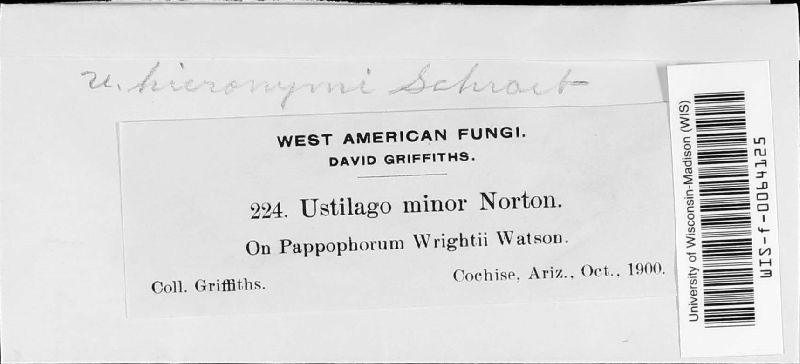 U. hieronymi Schroet
WEST AMERICAN FUNGI.
DAVID GRIFFITHS.
224. Ustilago minor Norton.
On Pappophorum Wrightii Watson.
Coll. Griffiths.
Cochise, Ariz., Oct., 1900.
University of Wisconsin-Madison (WIS)
WIS-f-0064125